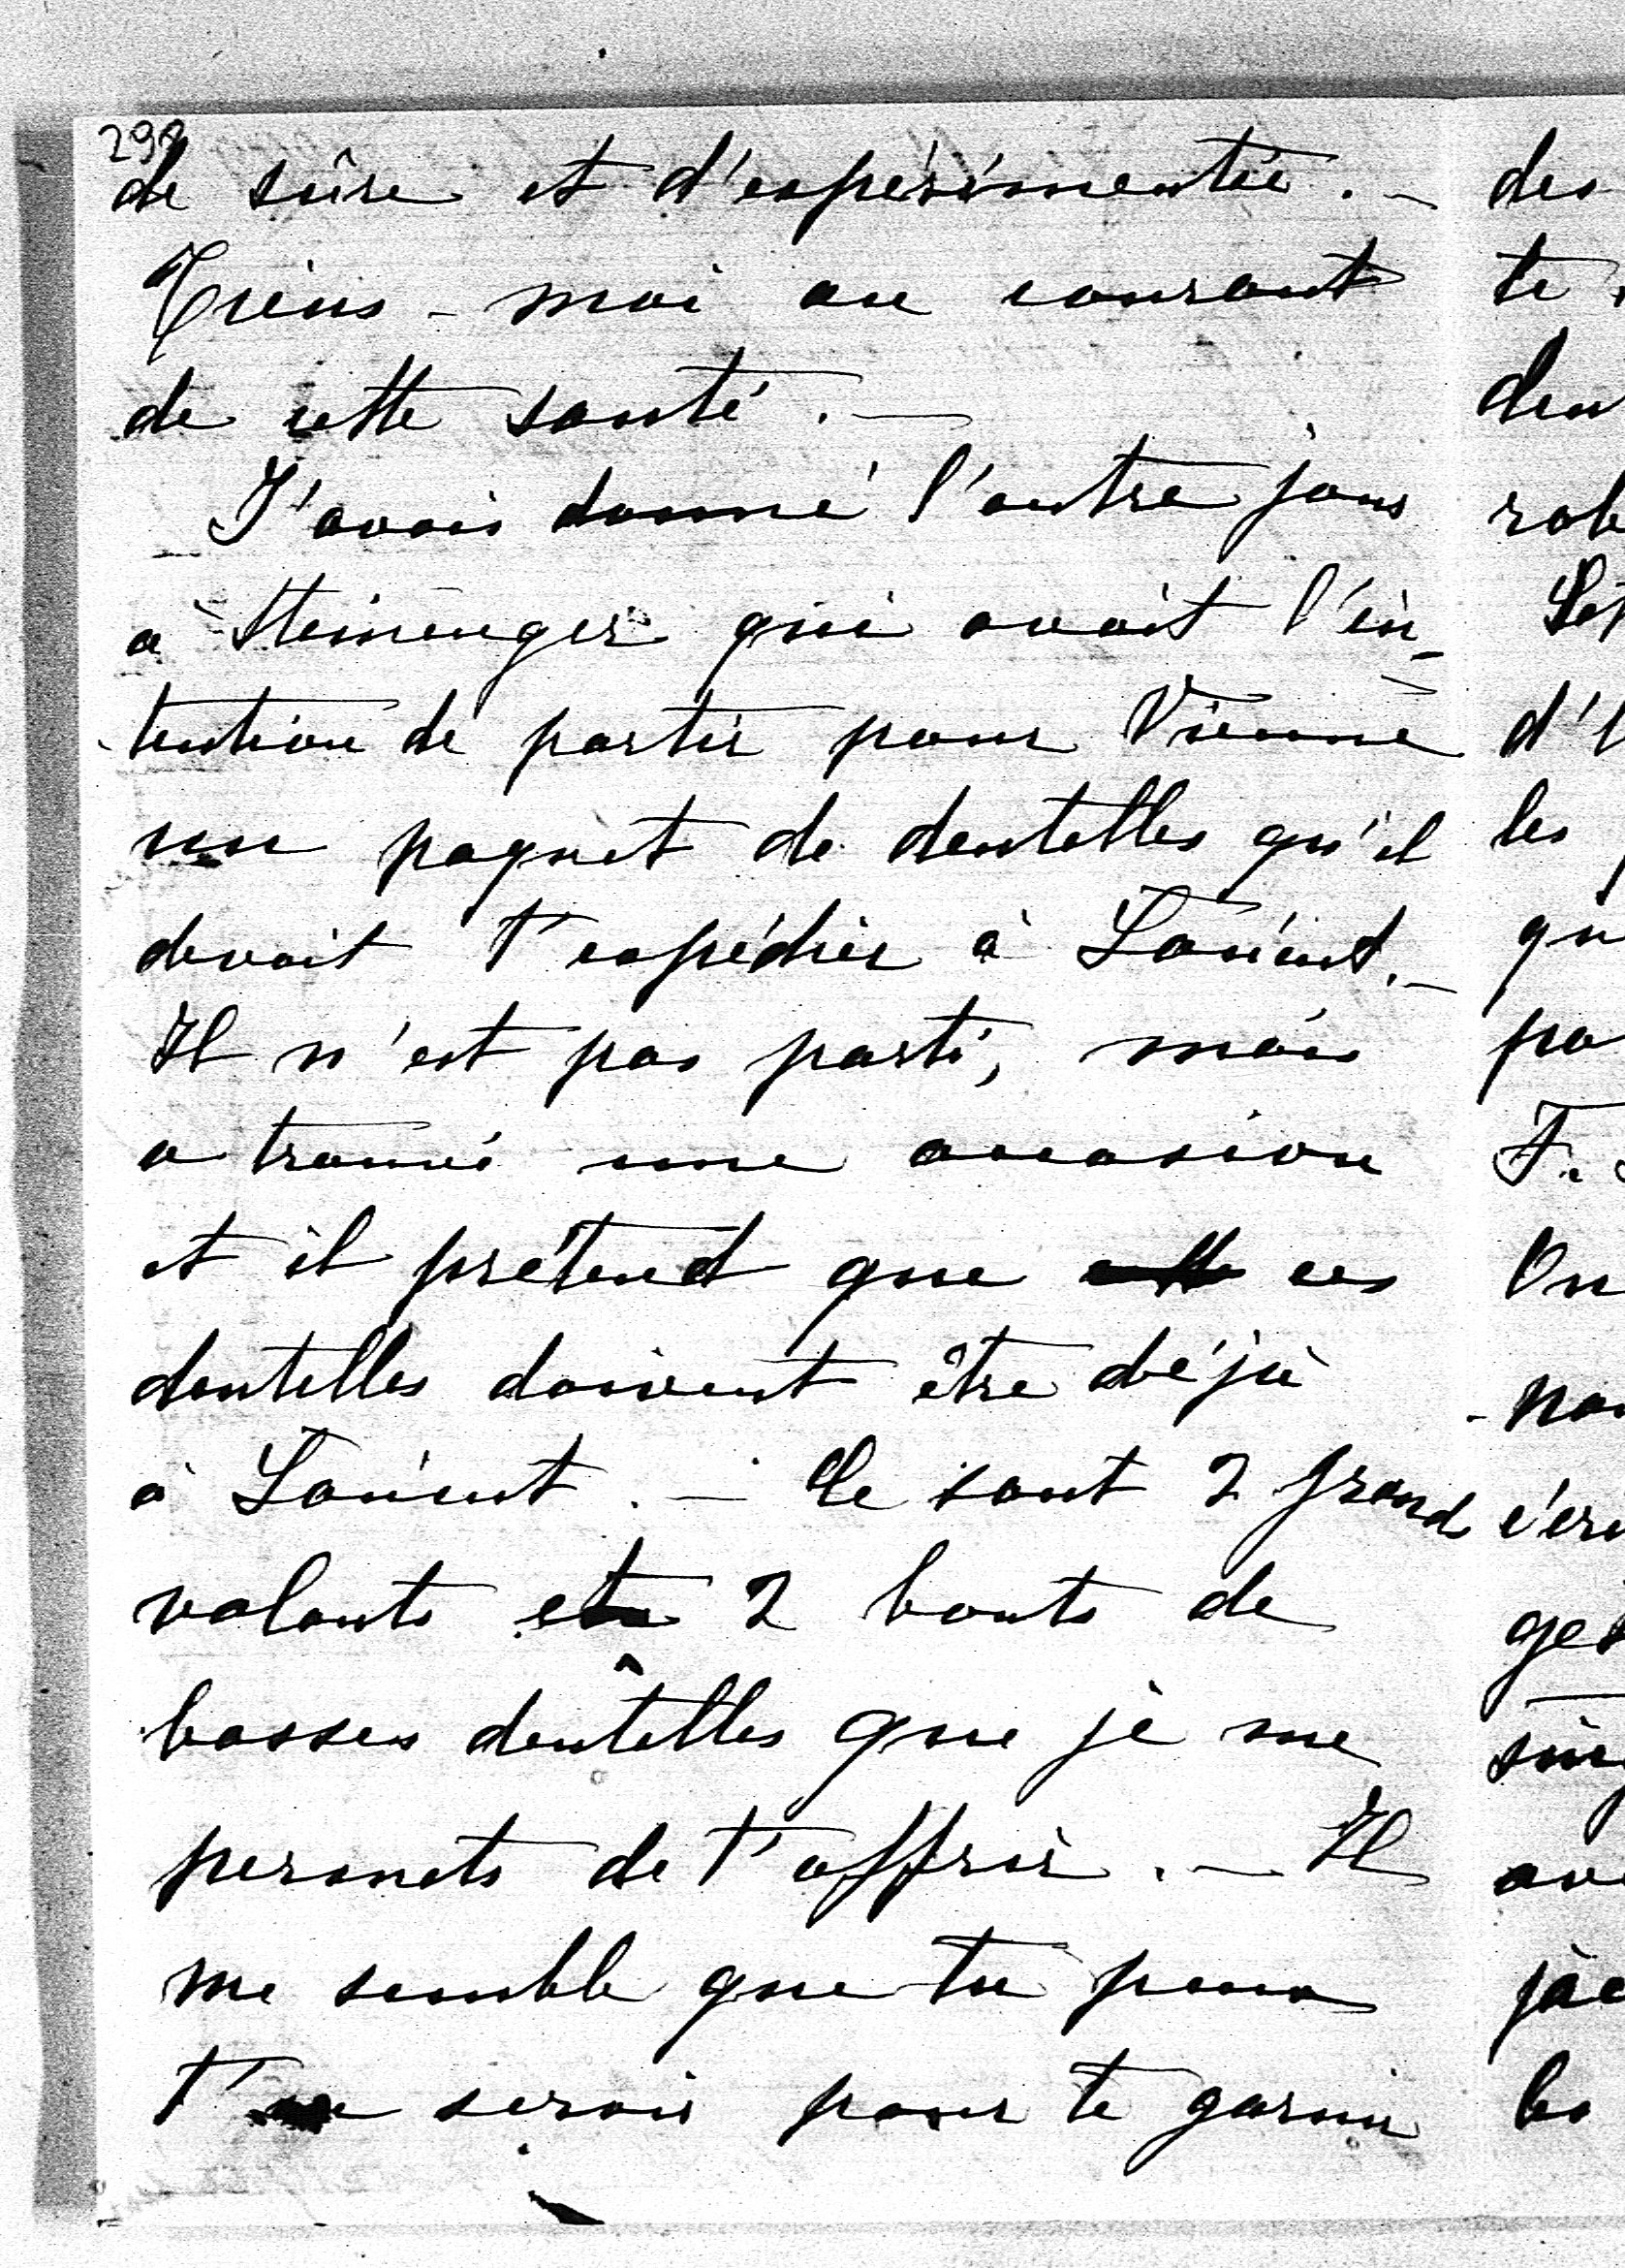 298
de sûre et d'expérimentée. –
Tiens-moi au courant
de cette santé. –
J'avais donné l'autre jour
à Steininger qui avait l'in-
tention de partir pour Vienne
un paquet de dentelles qu'il
devait t'expédier à Lancut. –
Il n'est pas parti, mais
a trouvé une occasion
et il prétend que ces
dentelles doivent être déjà
à Lancut. – Ce sont 2 grand
volants et 2 bouts de
basses dentelles que je me
permets de t'offrir. – Il
me semble que tu peux
t'en servir pour te garnir
des
te
den
rob
d'
les
qu
pa
F.
On
ge
av